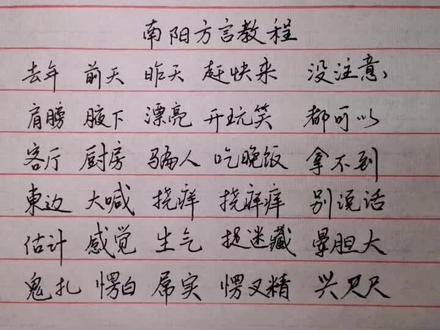 南阳方言教程
去年 前天 昨天 赶快来 没注意
肩膀 腋下 漂亮 开玩笑 都可以
客厅 厨房 骗人 吃晚饭 拿不到
東边 大喊 挠痒 挠痒痒 别说话
估计 感觉 生气 捉迷藏 晕胆大
鬼扎 愣白 屌实 愣叉精 兴尺尺